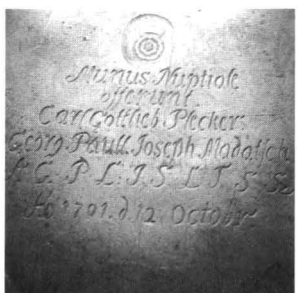 Munus Nuptiale
offerunt
Carl Gottlieb Plecker
Georg Paull. Joseph Madatsch
G. P. L. I. S. L. T. S. S.
Ao 1701. d. 12 Octobr